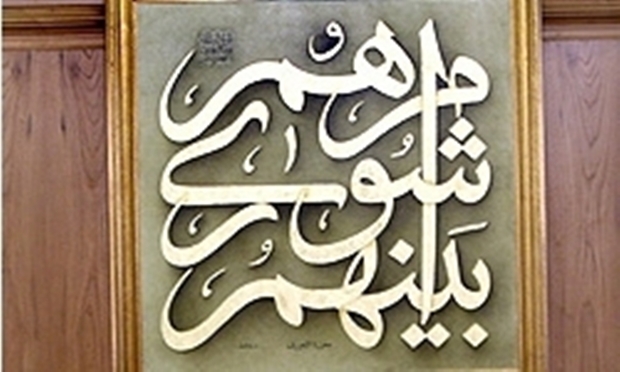 وَأمرهُم
شُورىٰ
بَينهُم